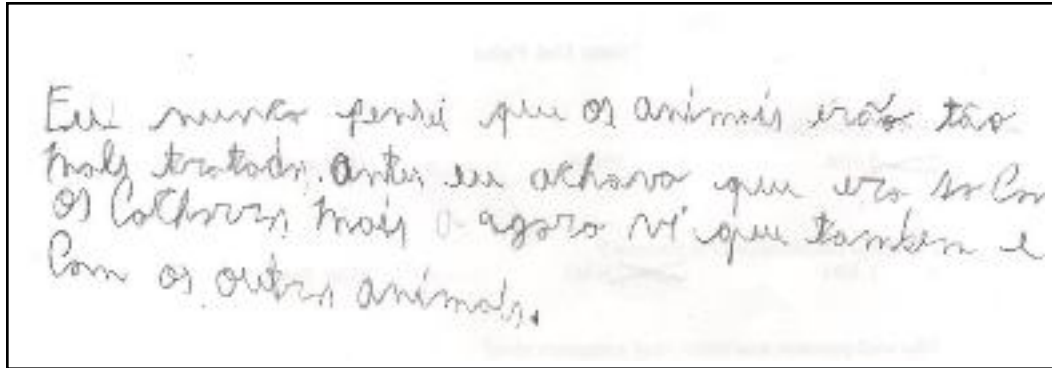 Eu nunca pensei que os animais irão tão
mals tratados. antes eu achava que era so Com
os Cachorros, mais agora vi que tambem e
Com os outros animais.